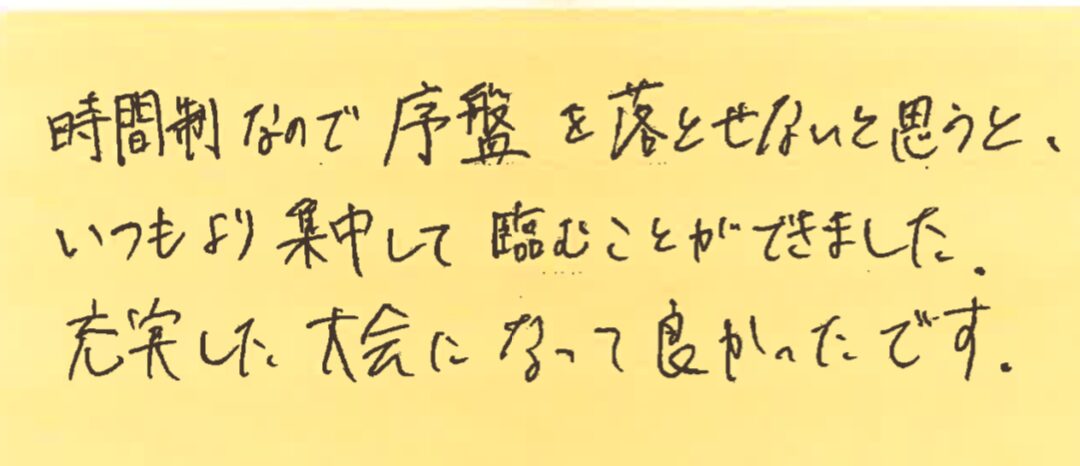 時間制なので序盤を落とせないと思うと、
いつもより集中して臨むことができました.
充実した大会になって良かったです.